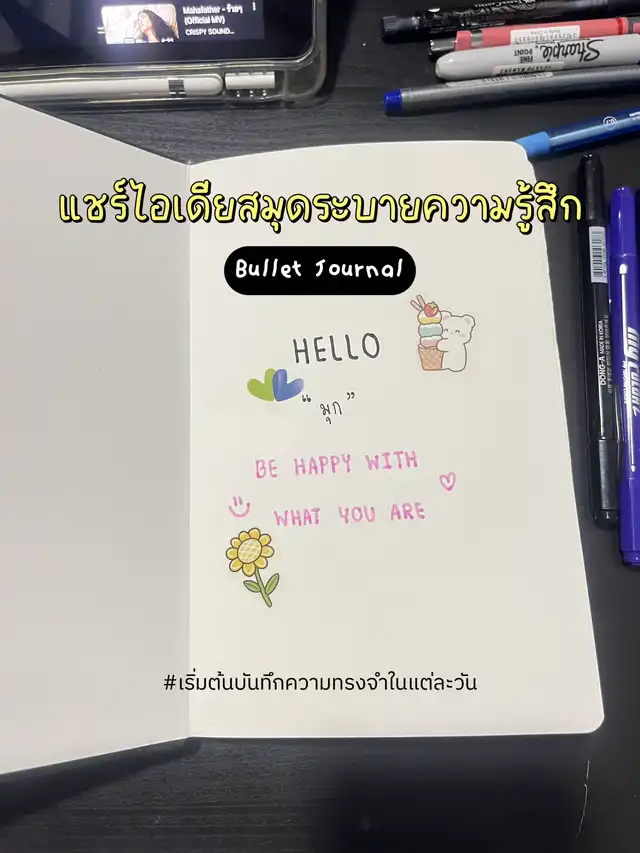 Mahafather - ร้ายๆ
(Official MV)
CRISPY SOUND...
Sharpie
FINE
POINT
แชร์ไอเดียสมุดระบายความรู้สึก
Bullet Journal
HELLO
“มุก”
BE HAPPY WITH
WHAT YOU ARE
#เริ่มต้นบันทึกความทรงจำในแต่ละวัน
DONG-A MADE IN KOREA
MY COLOR